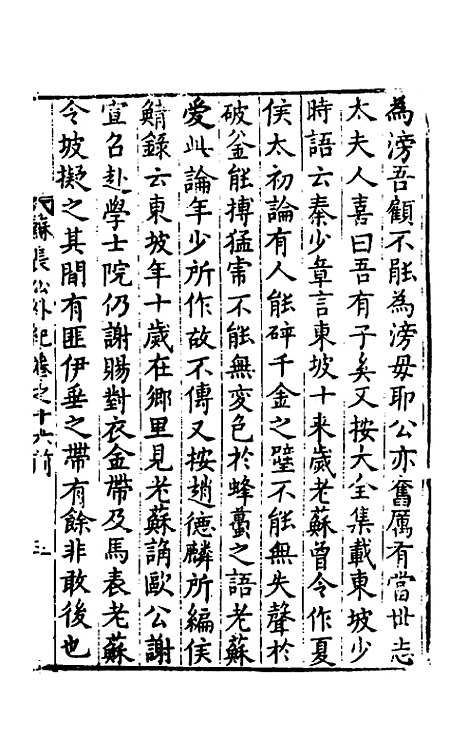 為滂吾顧不能為滂毋耶公亦奮厲有當世志
太夫人喜曰吾有子矣又按大全集載東坡少
時語云秦少章言東坡十來歲老蘇曾令作夏
侯太初論有人能碎千金之璧不能無失聲於
破釡能搏猛虎不能無变色於蜂蠆之語老蘇
愛此論年少所作故不傳又按趙德麟所編侯
鯖錄云東坡年十歲在鄉里見老蘇誦歐公謝
宣召赴學士院仍謝賜對衣金帶及馬表老蘇
令坡擬之其間有匪伊垂之帶有餘非敢後也
蘇長公外紀卷之十六前 三